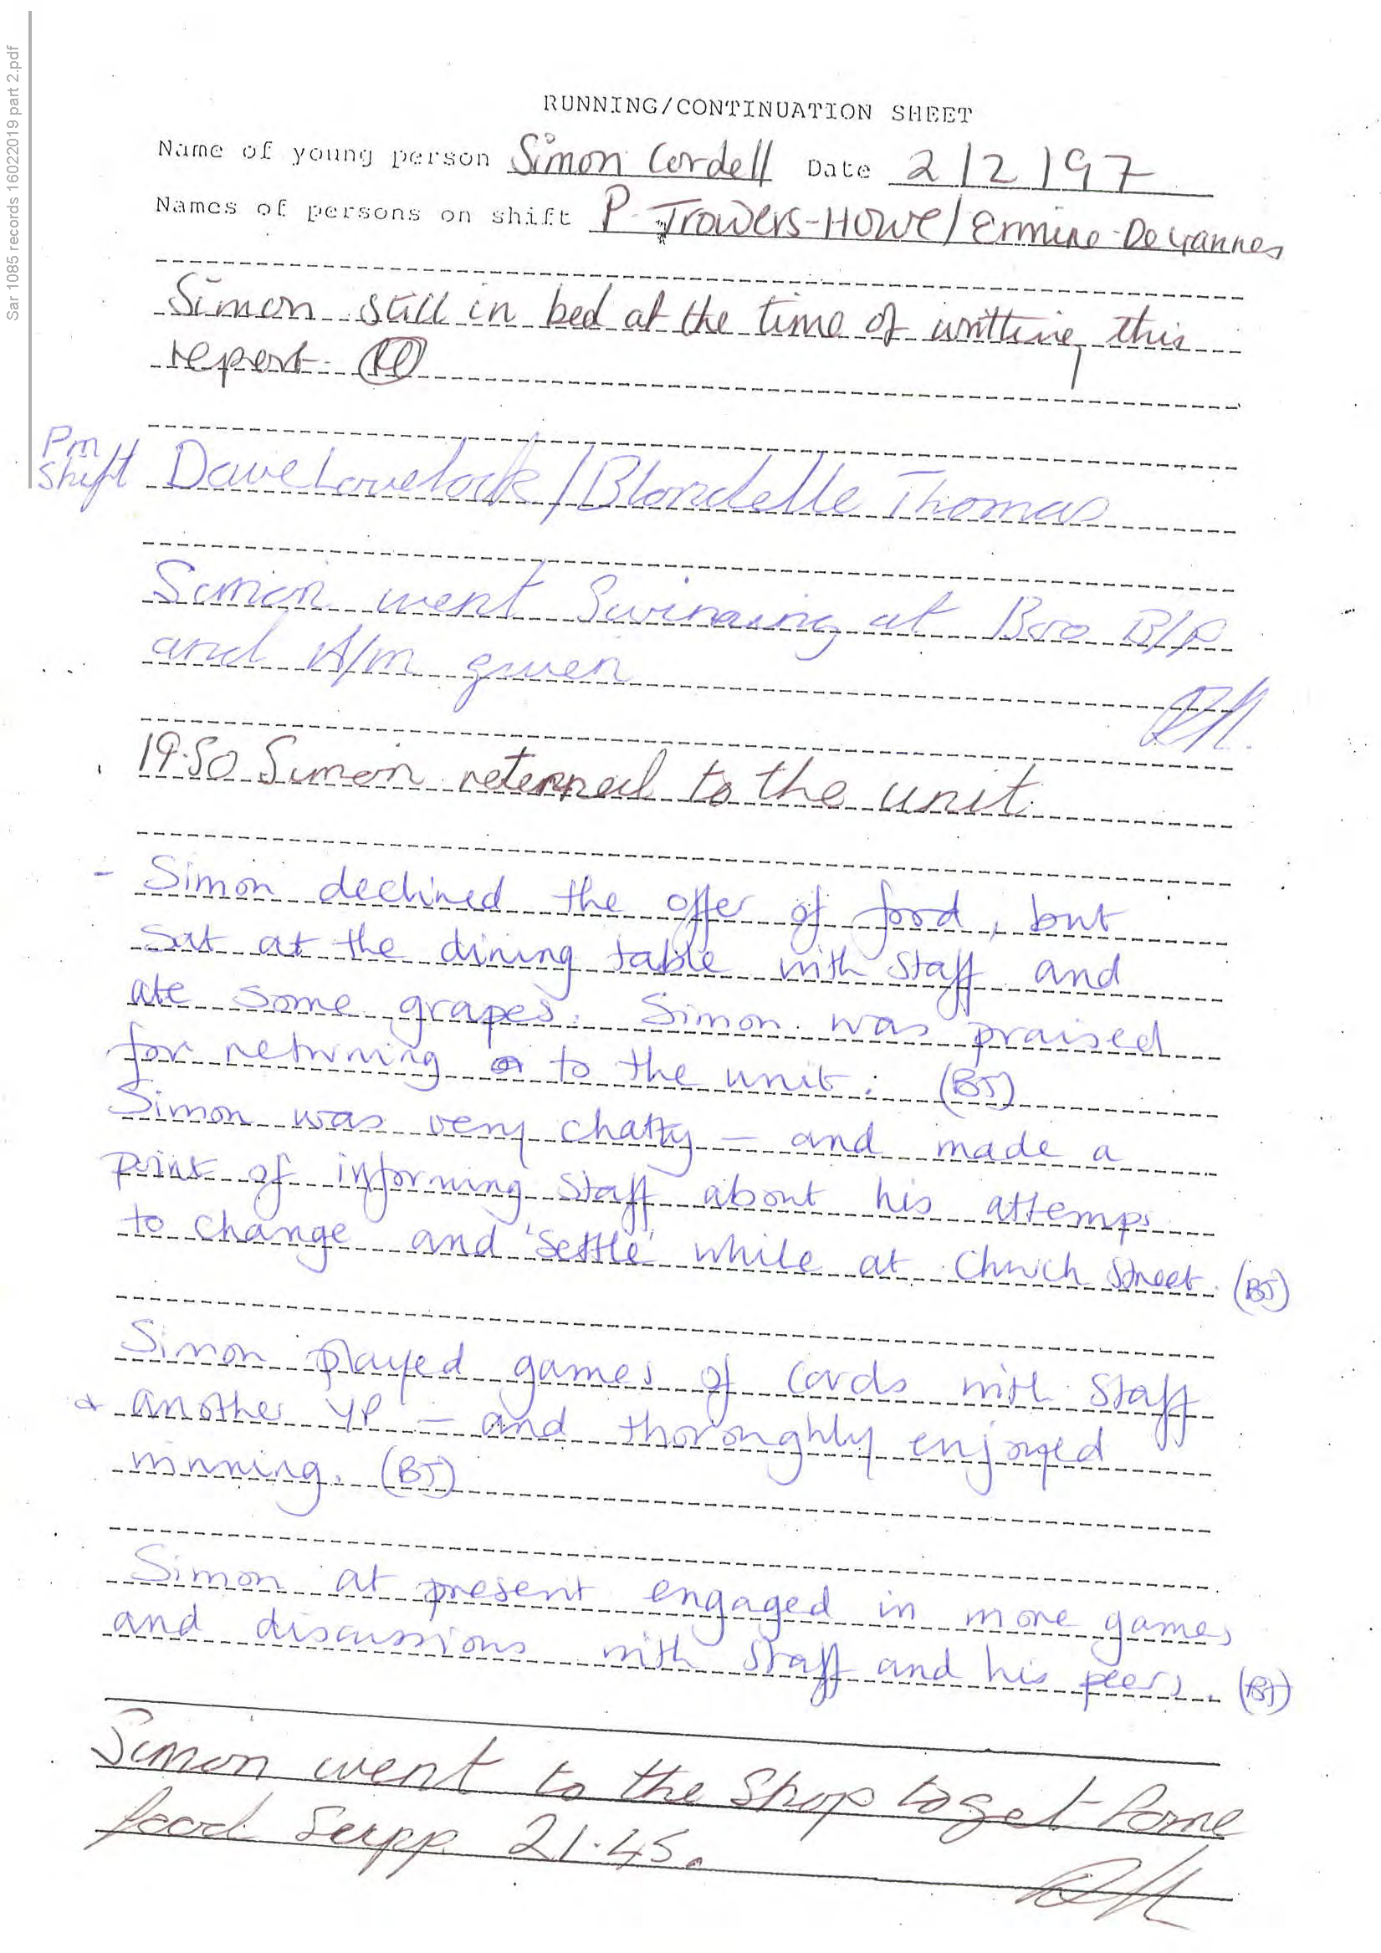 Sar 1085 records 16022019 part 2.pdf
RUNNING/CONTINUATION SHEET
Name of young person Simon Cordell Date 2/2/97
Names of persons on shift P. Trowers-Howe/Ermine-De
Simon still in bed at the time of writting this
report.
Pm
Shift Dave Lovelock/Blondelle Thomas
Simon went Swimming at
and A/m given
19.50 Simon returned to the unit.
- Simon declined the offer of food, but
sat at the dining table with staff and
ate some grapes. Simon was praised
for returning to the unit. (BJ)
Simon was very chatty – and made a
point of informing staff about his attemps
to change and 'settle' while at Church Street. (BJ)
Simon played games of cards with staff
& another YP – and thoroughly enjoyed
winning. (BJ)
Simon at present engaged in more games
and discussions with staff and his peers. (BJ)
Simon went to the Shop to get some
food Supp. 21.45.